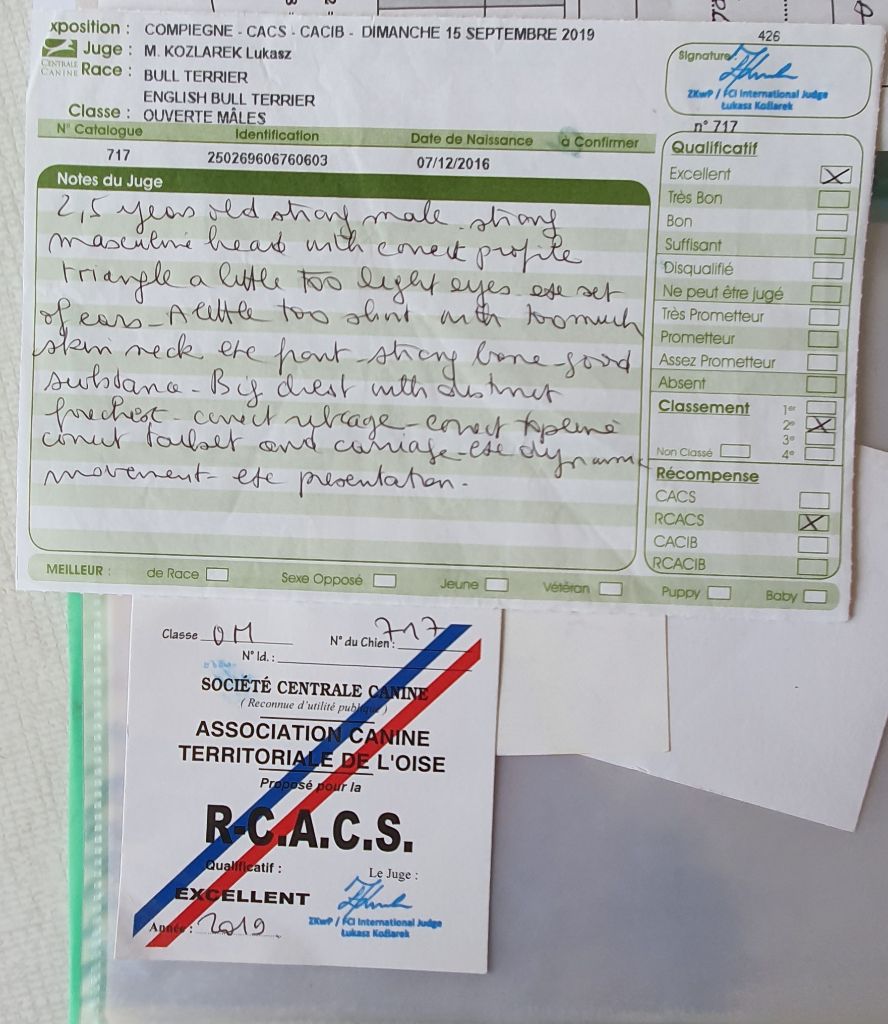 xposition : COMPIEGNE - CACS - CACIB - DIMANCHE 15 SEPTEMBRE 2019
426
CENTRALE CANINE
Juge : M. KOZLAREK Lukasz
Race : BULL TERRIER
ENGLISH BULL TERRIER
Classe : OUVERTE MÂLES
Signature :
ZKwP / FCI International Judge
Łukasz Koźlarek
N° Catalogue Identification Date de Naissance à Confirmer
717 250269606760603 07/12/2016
Notes du Juge
2,5 years old strong male. strong
masculine head with correct profile
triangle a little too light eyes exe set
of ears - A little too short with too much
skin neck exe front - strong bone - good
substance - Big chest with distinct
forechest - correct ribcage - correct topline
correct tailset and carriage - exe dynamic
movement - exe presentation -
n° 717
Qualificatif
Excellent X
Très Bon
Bon
Suffisant
Disqualifié
Ne peut être jugé
Très Prometteur
Prometteur
Assez Prometteur
Absent
Classement 1er
2e X
3e
Non Classé 4e
Récompense
CACS
RCACS X
CACIB
RCACIB
MEILLEUR : de Race Sexe Opposé Jeune Vétéran Puppy Baby
Classe OM N° du Chien : 717
N° Id. :
SOCIÉTÉ CENTRALE CANINE
( Reconnue d'utilité publique )
ASSOCIATION CANINE
TERRITORIALE DE L'OISE
Proposé pour la
R-C.A.C.S.
Qualificatif : Le Juge :
EXCELLENT
Année : 2019
ZKwP / FCI International Judge
Łukasz Koźlarek